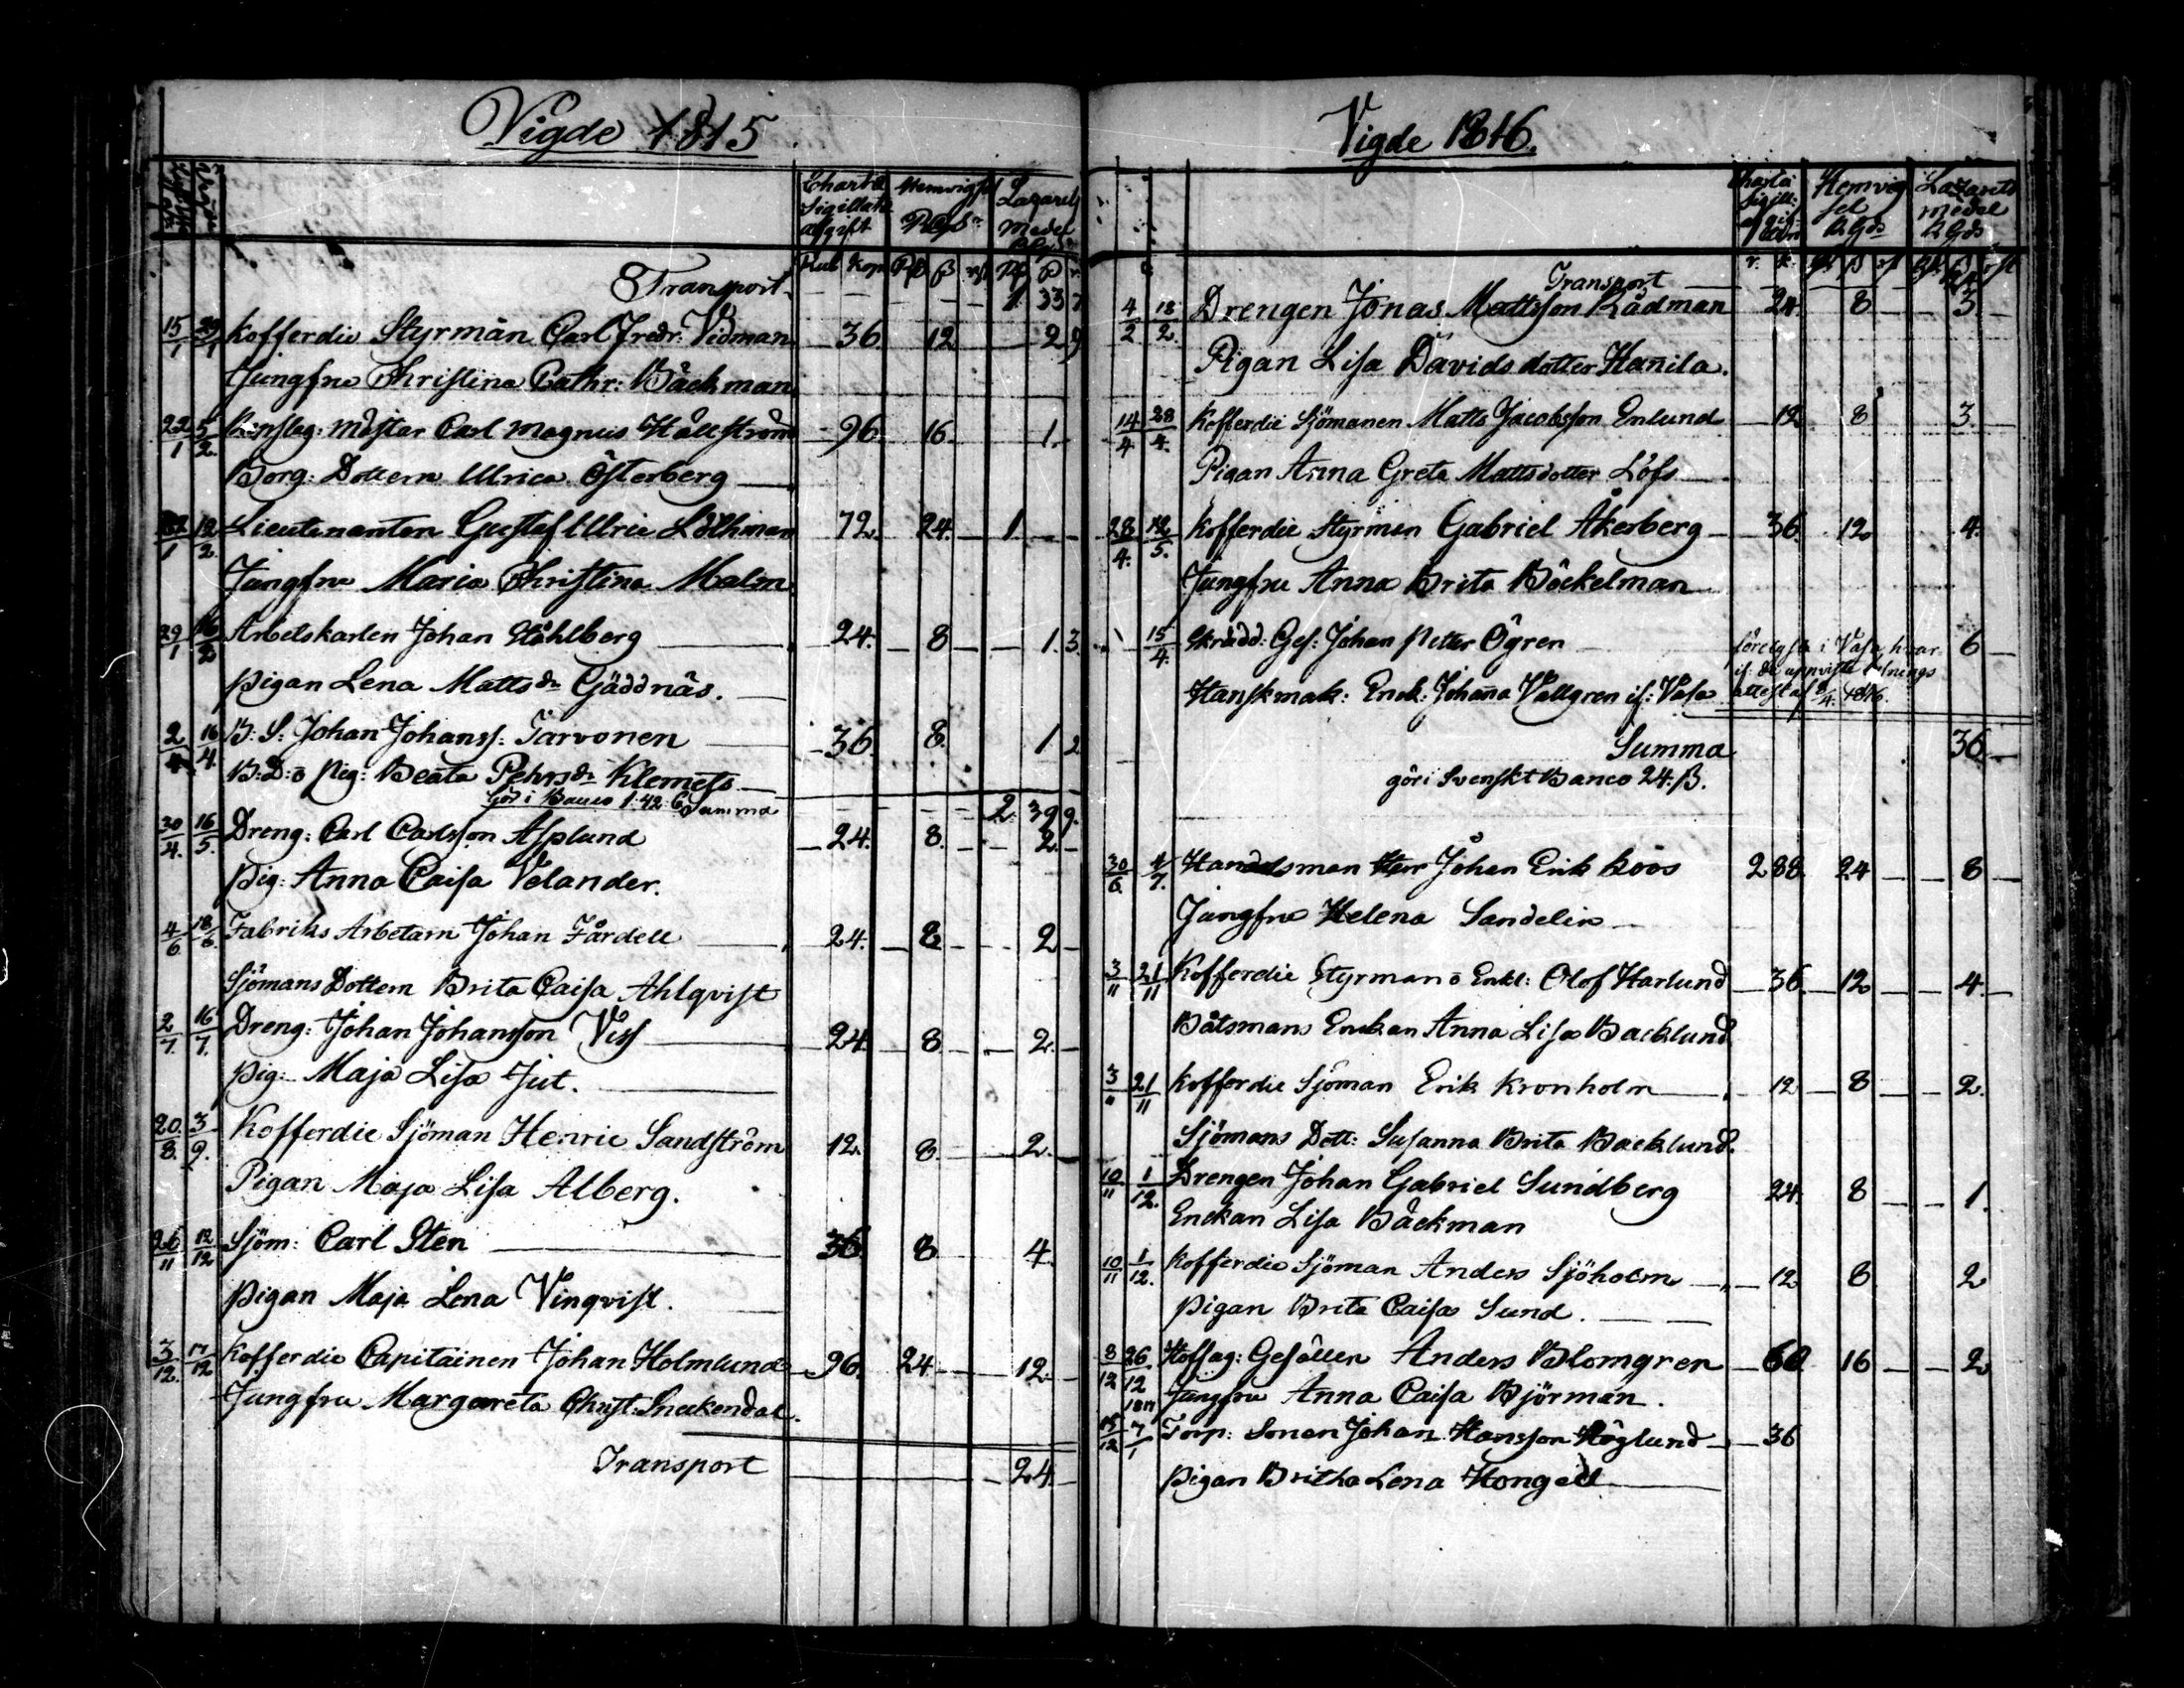 Vigde 1815
Charta Sigillatæ afgift
Hemvigsel
Lazarets Medel
Rub Kop
Transport 1. 33
15/1 29/1 Kofferdie Styrman Carl Fredr: Vidman 36. 12 2 9
Jungfru Christina Cathr: Bäckman
22/1 5/2 Carl Magnus Hällström 96. 16. 1.
Borg: Dottern Ulrica Österberg
12/2 Lieutenanten Gustaf Ulric 72. 24. 1.
Jungfru Maria Christina Malm
29/1 Arbetskarlen Johan Ståhlberg 24. 8 1. 3.
Pigan Lena Matts dr Gäddnäs.
2/4 16/4. B: S: Johan Johanss: Tarvonen 36. 8. 1 2
B: D: o Pig: Beata Pehrs dr Klemets
Gör i Banco 1: 42: 6 Summa 2. 39 9.
30/4. 16/5. Dreng: Carl Carlsson Asplund 24. 8. 2.
Pig: Anna Caisa Velander.
4/6 18/6. Fabriks Arbetarn Johan Fårdell 24. 8 2
Sjömans Dottern Brita Caisa Ahlqvist
2/7. 16/7. Dreng: Johan Johansson Viss 24 8 2.
Pig: Maja Lisa Jut.
20./8. 3/9. Kofferdie Sjöman Henric Sandström 12. 8. 2.
Pigan Maja Lisa Alberg.
26/11 12/12 Sjöm: Carl Sten 36 8 4
Pigan Maja Lena Vinqvist.
3/12. 17/12 Kofferdie Capitainen Johan Holmlund 96. 24 12
Jungfru Margareta Christ: Sneckendal.
Transport 24.
Vigde 1816.
Charta Sigill:
Hemvigsel
Lazarets medel
Transport
4/2 18/2. Drengen Jonas Mattsson Rådman 24. 8 3.
Pigan Lisa Davids dotter Hanila.
14/4 28/4. Kofferdie Sjömanen Matts Jacobsson Enlund 12 8 3
Pigan Anna Greta Mattsdotter Löfs
28/4. 12/5. Kofferdie Styrman Gabriel Åkerberg 36. 12 4.
Jungfru Anna Brita Böckelman
15/4. Skrädd: Ges: Johan Petter Ögren 6
Handskmak: Enck: Johanna Vallgren if: Vasa
Summa 36
gör i Svenskt Banco 24. β.
30/6. 4/7. Handelsman Herr Johan Erik Roos 288. 24 8
Jungfru Helena Sandelin
3/11 21/11 Kofferdie Styrman o Enkl: Olof Harlund 36. 12 4.
Båtsmans Enckan Anna Lisa Backlund
3/11 21/11 Kofferdie Sjöman Erik Kronholm 12 8 2.
Sjömans Dott: Susanna Brita Backlund.
10/11 1/12. Drengen Johan Gabriel Sundberg 24. 8 1.
Enckan Lisa Bäckman
10/11 1/12. Kofferdie Sjöman Anders Sjöholm 12 8 2
Pigan Brita Caisa Sund.
8/12 26/12 Hofsag: Gesällen Anders Blomgren 60 16 2
Jungfru Anna Caisa Björman.
15/12 7/1 Torp: Sonen Johan Hansson Höglund 36
Pigan Britha Lena Hongell